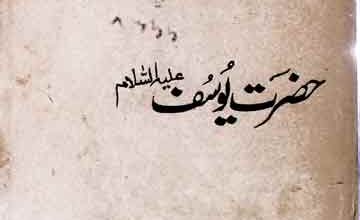 حضرت یُوسُف علیہ السّلام